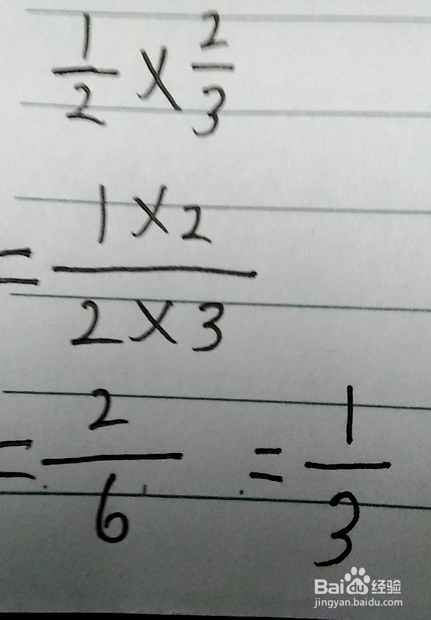 1/2 × 2/3
= 1×2/2×3
= 2/6 = 1/3
Bai du 经验
jingyan.baidu.com